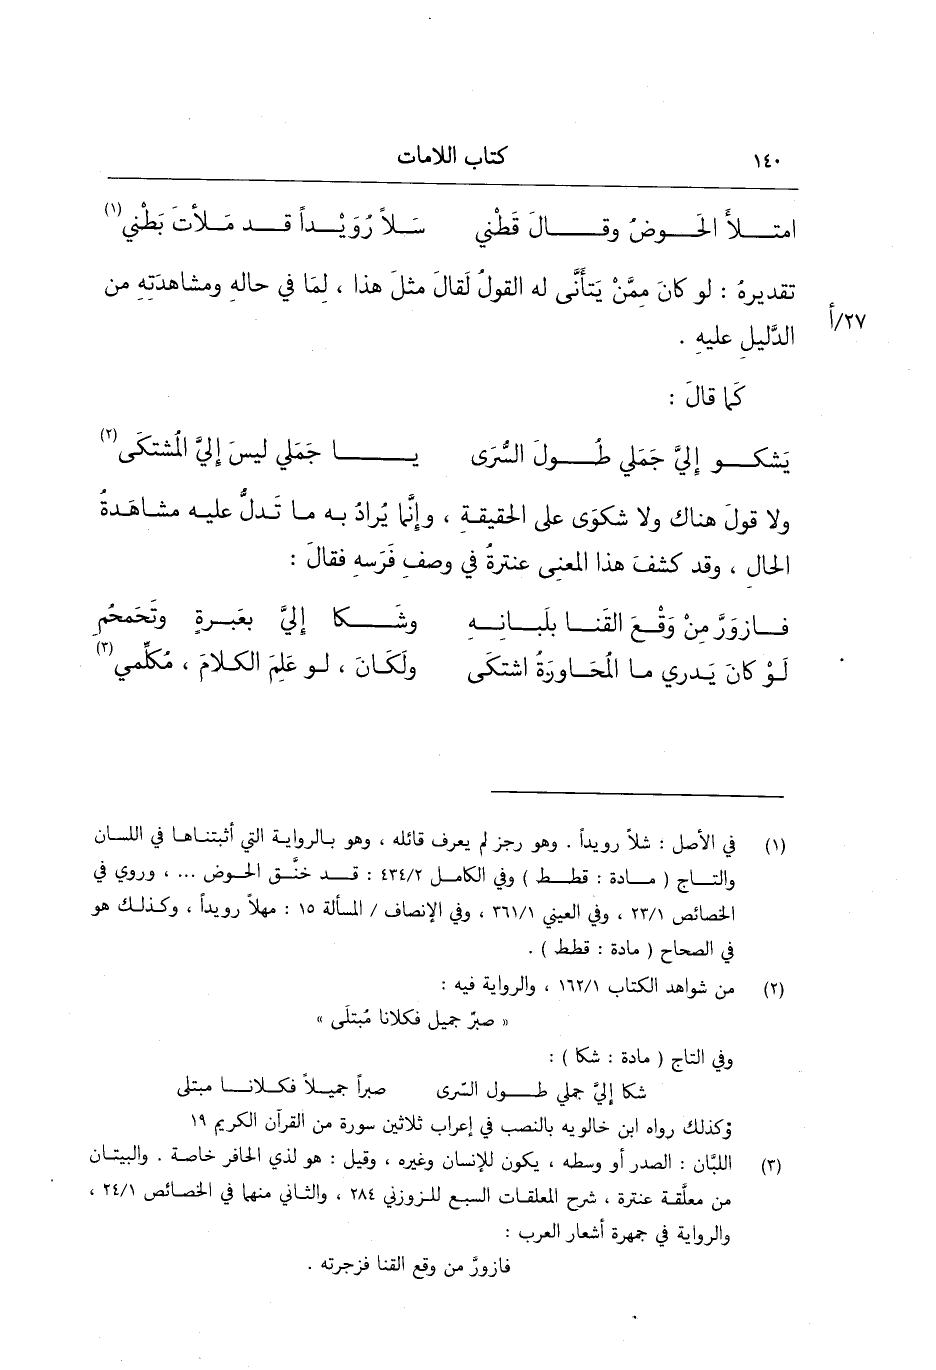 ١٤٠ كتاب اللامات
امتـلأَ الحَـوضُ وقـالَ قَطْني سَـلاً رُوَيْـداً قـد مَـلأتَ بَطْني(١)
تقديرهُ : لو كانَ ممَّنْ يَتأتَّى له القولُ لَقالَ مثلَ هذا ، لِمَا في حالهِ ومشاهدَتهِ من
٢٧/أ
الدَّليلِ عليهِ .
كَما قالَ :
يَشكـو إليَّ جَمَلي طُـولَ السُّرَى يـا جَمَلي ليسَ إليَّ المُشتكَى(٢)
ولا قولَ هناك ولا شكوَى على الحقيقةِ ، وإنَّما يُرادُ به ما تَدلُّ عليه مشاهَدةُ
الحالِ ، وقد كشفَ هذا المعنى عنترةُ في وصفِ فَرَسهِ فقالَ :
فـازوَرَّ مِنْ وَقْعِ القَنـا بلَبـانِـهِ وشَـكا إليَّ بعَبـرةٍ وتَحَمحُمِ
لَوْ كانَ يَدري ما المُحَاورَةُ اشتكَى ولَكَانَ ، لو عَلِمَ الكلامَ ، مُكلِّمي(٣)
(١) في الأصل : شلاً رويداً . وهو رجز لم يعرف قائله ، وهو بالرواية التي أثبتناها في اللسان
والتاج ( مادة : قطط ) وفي الكامل ٤٣٤/٢ : قد خنَّق الحوض ... ، وروي في
الخصائص ٢٣/١ ، وفي العيني ٣٦١/١ ، وفي الإنصاف / المسألة ١٥ : مهلاً رويداً ، وكذلك هو
في الصحاح ( مادة : قطط ) .
(٢) من شواهد الكتاب ١٦٢/١ ، والرواية فيه :
« صبرٌ جميل فكلانا مُبتلَى »
وفي التاج ( مادة : شكا ) :
شكا إليَّ جملي طـول السّرى صبراً جميـلاً فكلانـا مبتلى
وكذلك رواه ابن خالويه بالنصب في إعراب ثلاثين سورة من القرآن الكريم ١٩
(٣) اللبَّان : الصدر أو وسطه ، يكون للإنسان وغيره ، وقيل : هو لذي الحافر خاصة . والبيتان
من معلَّقة عنترة ، شرح المعلقات السبع للزوزني ٢٨٤ ، والثاني منهما في الخصائص ٢٤/١ ،
والرواية في جمهرة أشعار العرب :
فازورَّ من وقع القنا فزجرته .